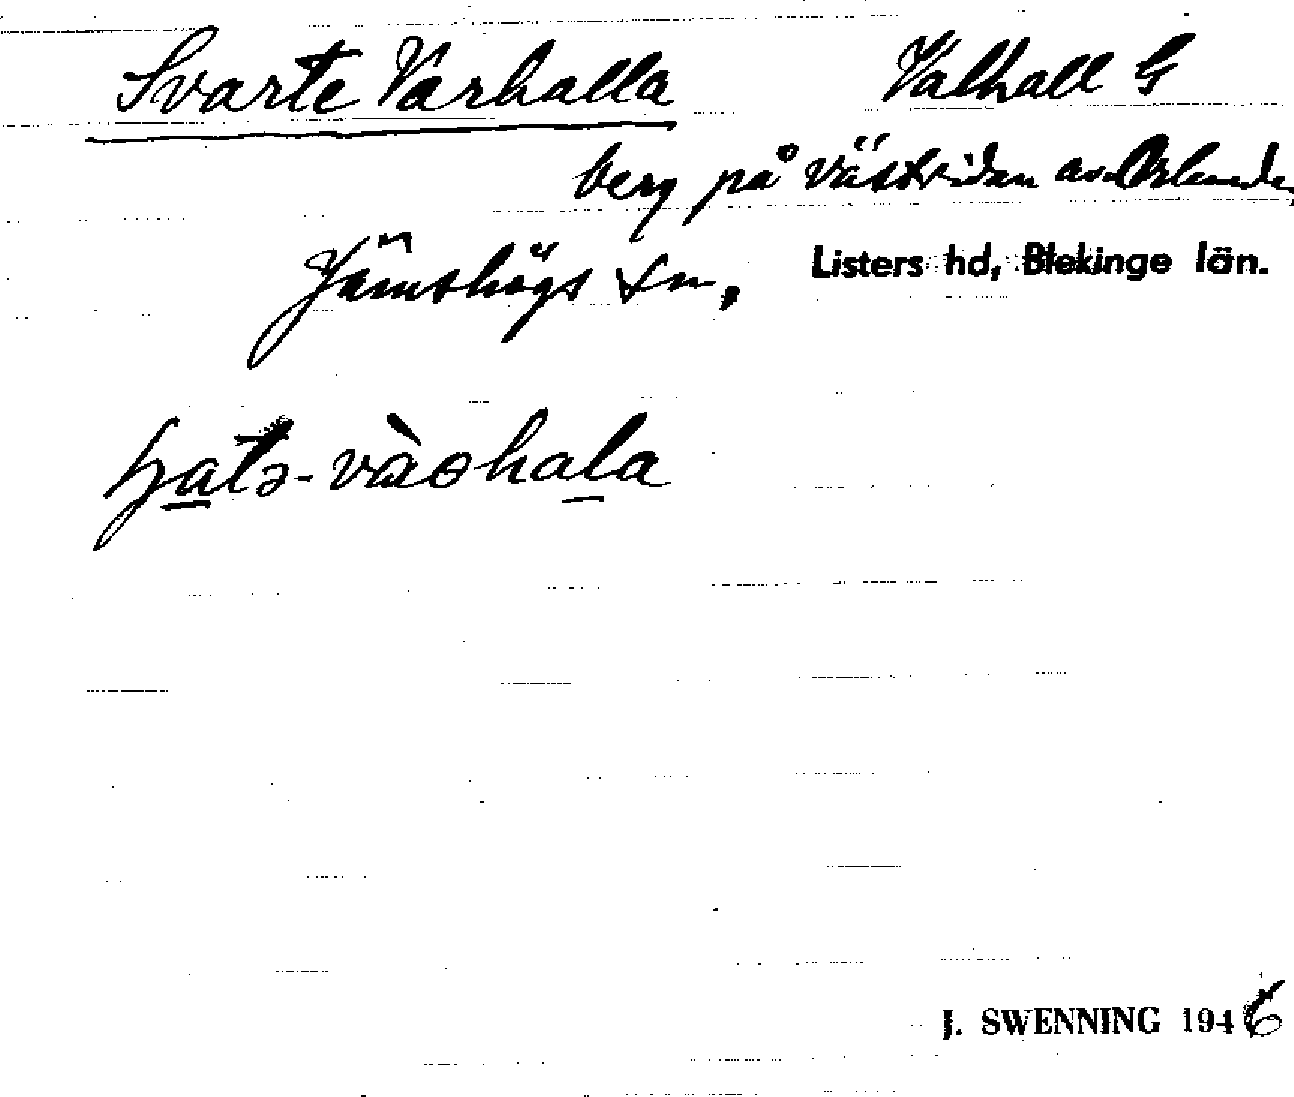 Svarte Varhalla Valhall G
berg på västsidan av
Jämshögs sn, Listers hd, Blekinge län.
J. SWENNING 1946